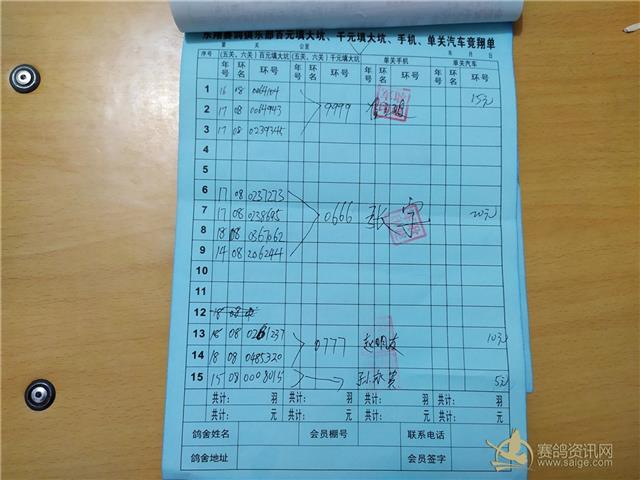 东翔赛鸽俱乐部百元填大坑、千元填大坑、手机、单关汽车竞翔单
第 关 公里 年 月 日
序号 (五关、六关)百元填大坑 (五关、六关)千元填大坑 单关手机 单关汽车
年号 环名 环号 年号 环名 环号 年号 环名 环号 年号 环名 环号
1 16 08 0064104 15元
2 17 08 0064943 9999
3 17 08 0239345
4
5
6 17 08 0237273
7 17 08 0238695 0666 张宇 20元
8 18 08 0367062
9 14 08 206244
10
11
12
13 18 08 0261237 10元
14 18 08 0485320 0777
15 15 08 0008015 5元
共计: 羽 共计: 羽 共计: 羽 共计: 羽
共计: 元 共计: 元 共计: 元 共计: 元
鸽舍姓名 会员棚号 联系电话
鸽舍地址 会员签字
赛鸽资讯网
www.saige.com